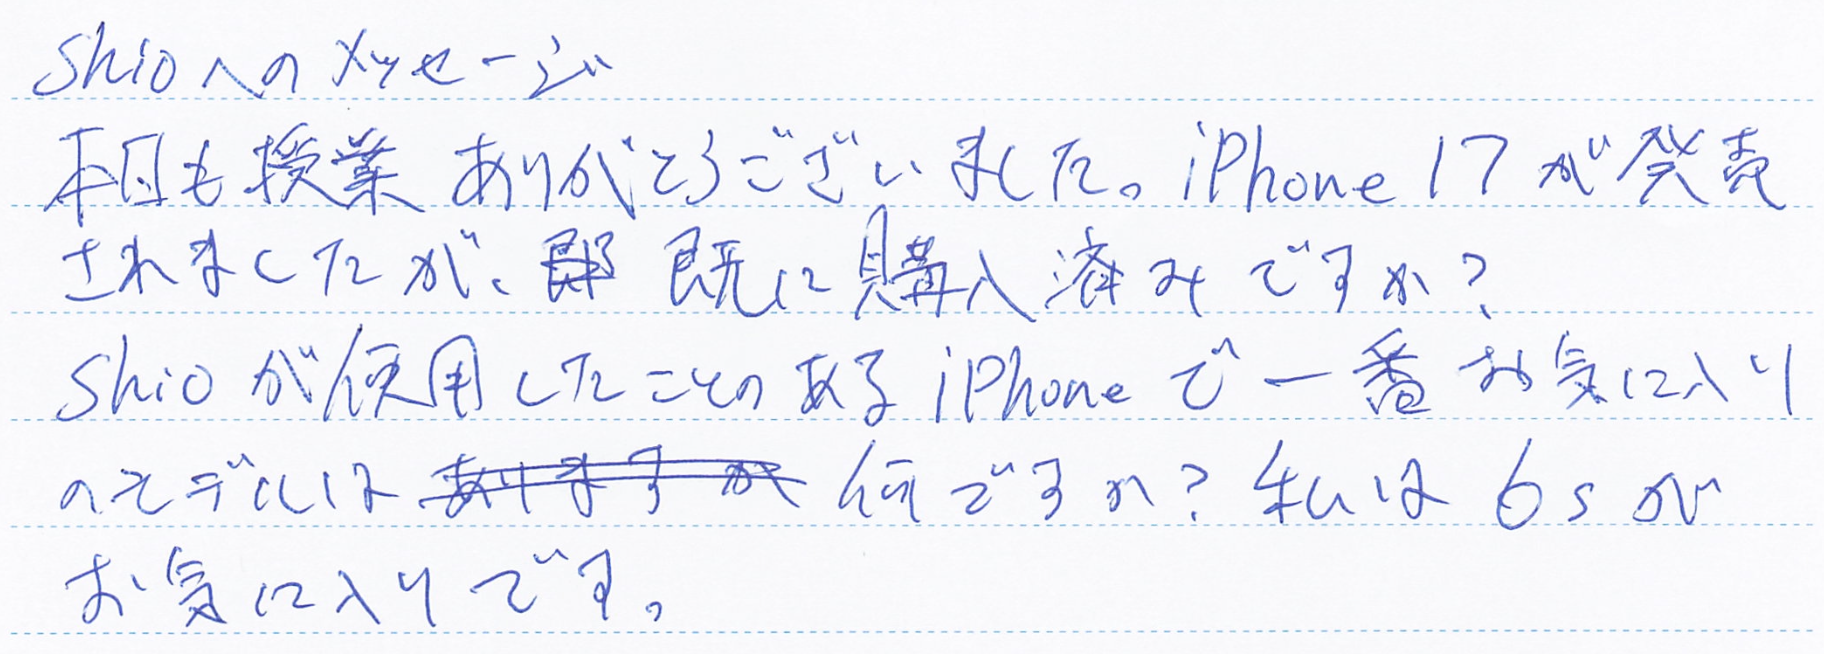 shioへのメッセージ
本日も授業ありがとうございました。iPhone 17が発売
されましたが、既に購入済みですか?
shioが使用したことのあるiPhoneで一番お気に入り
のモデルは何ですか?私は6sが
お気に入りです。